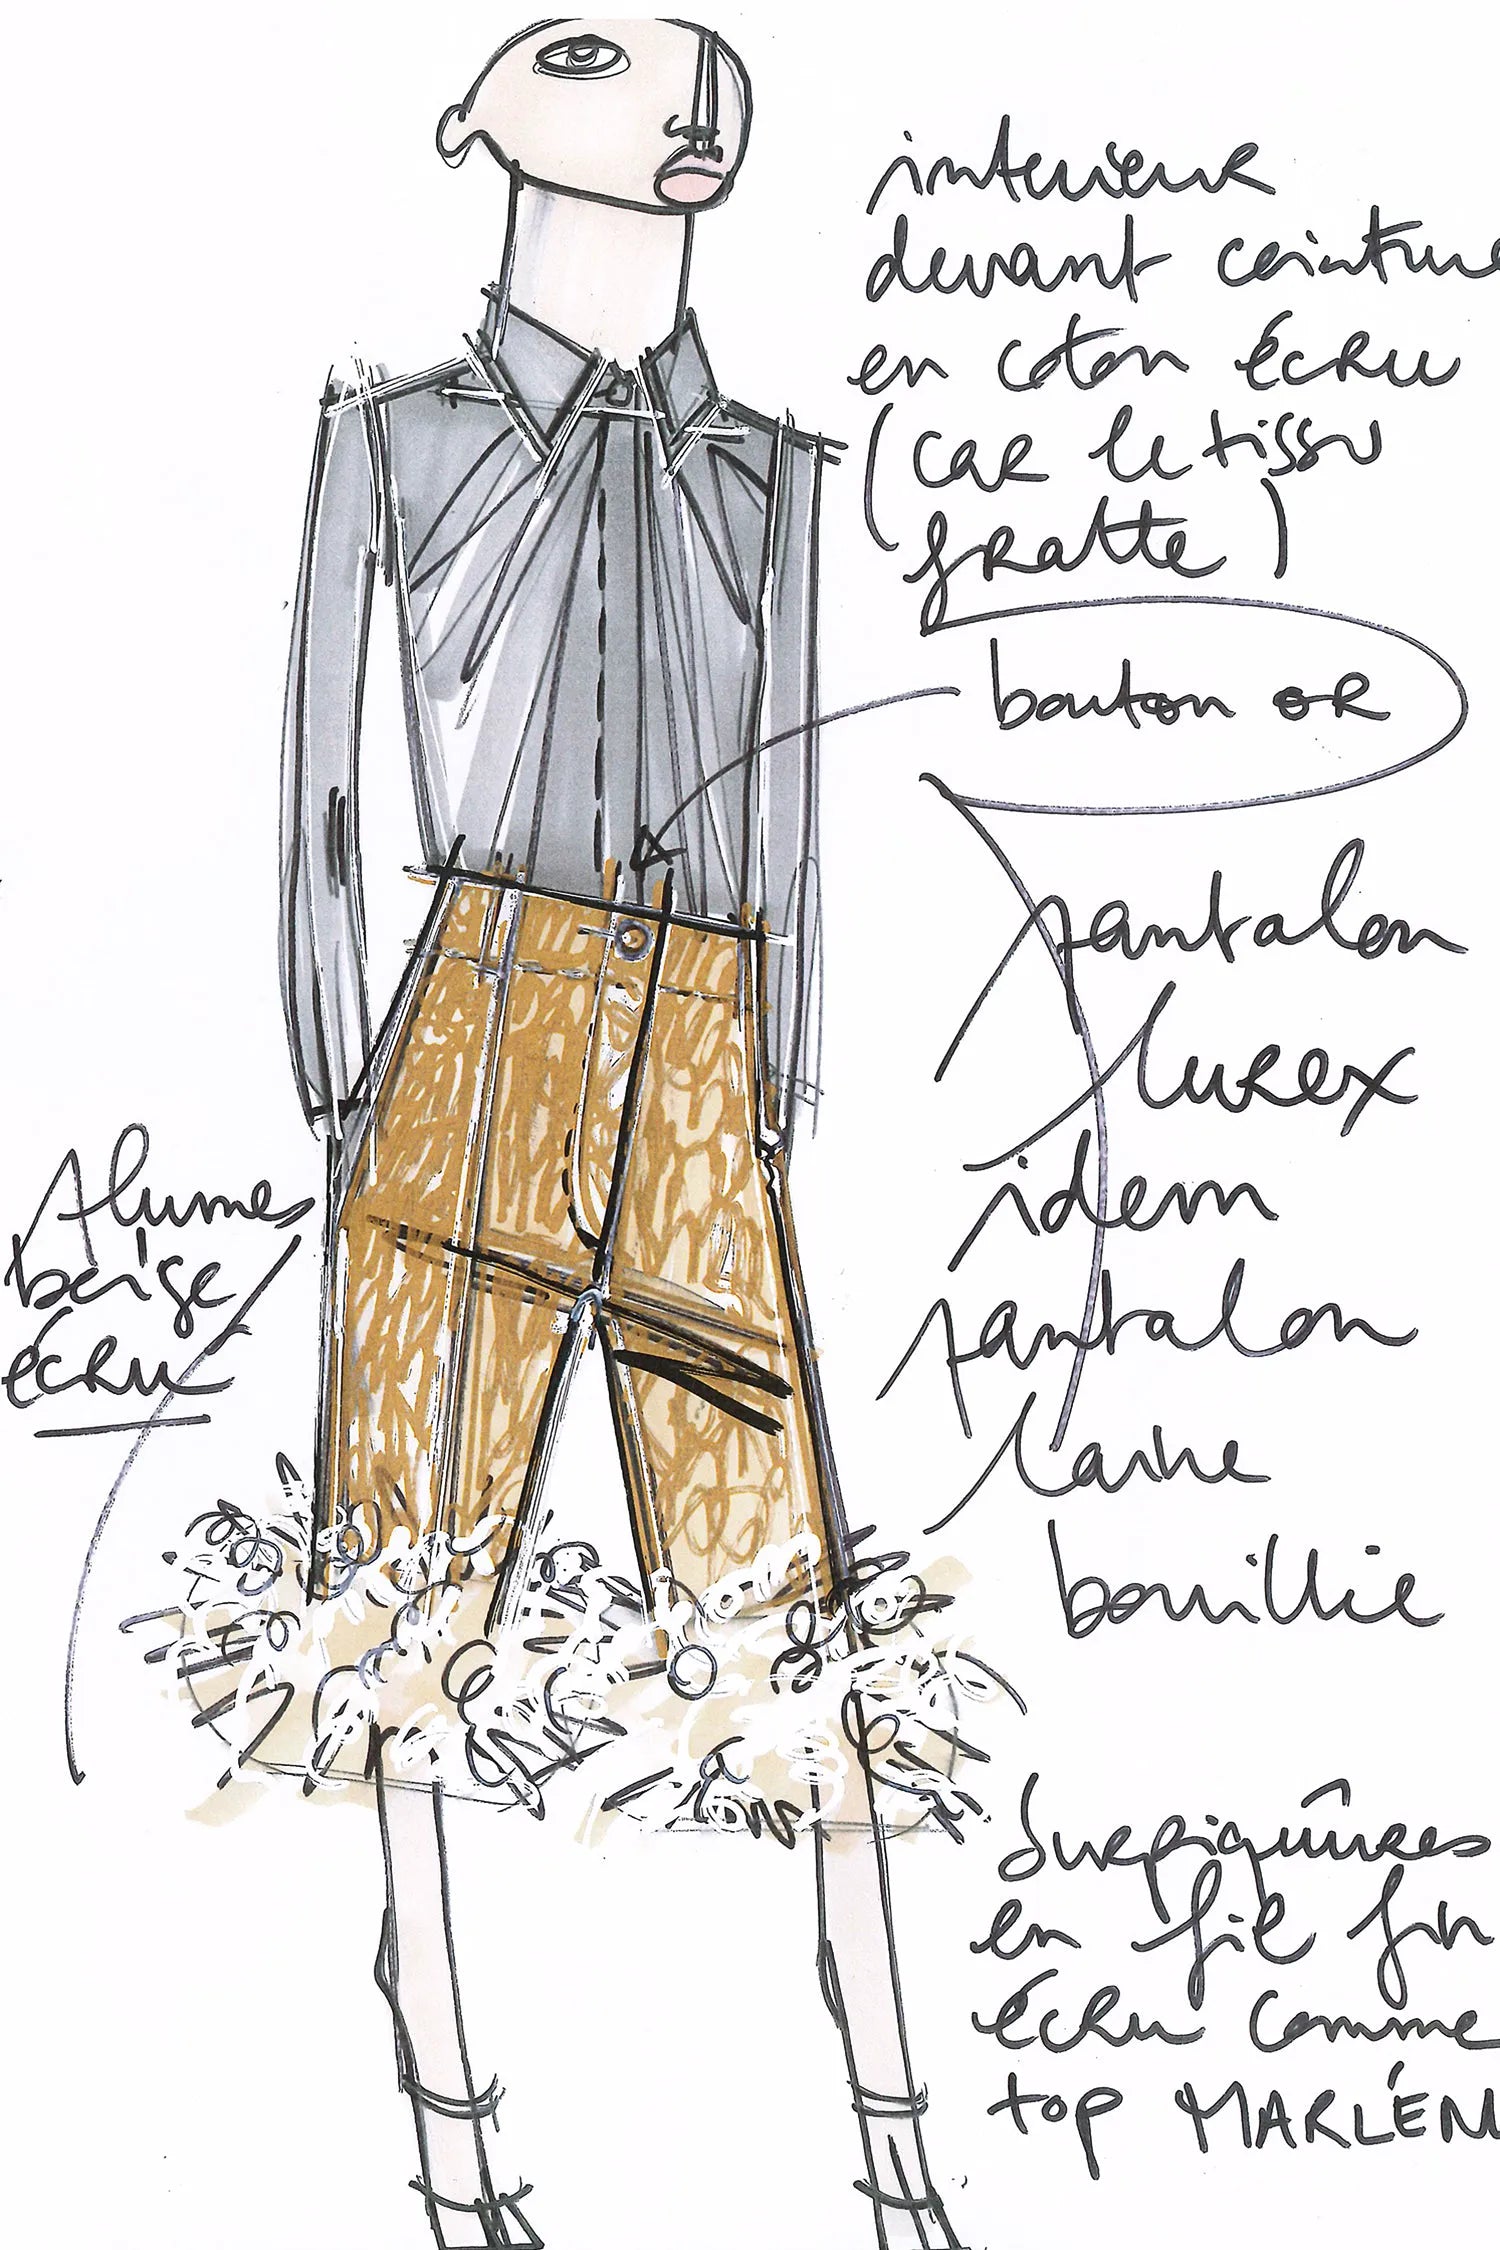 interieur
devant ceinture
en coton écru
(car le tissu
gratte)
bouton or
pantalon
lurex
idem
pantalon
laine
bouillie
Plumes
beige
écru
Surpiqûres
en fil fin
écru comme
top MARLÉN